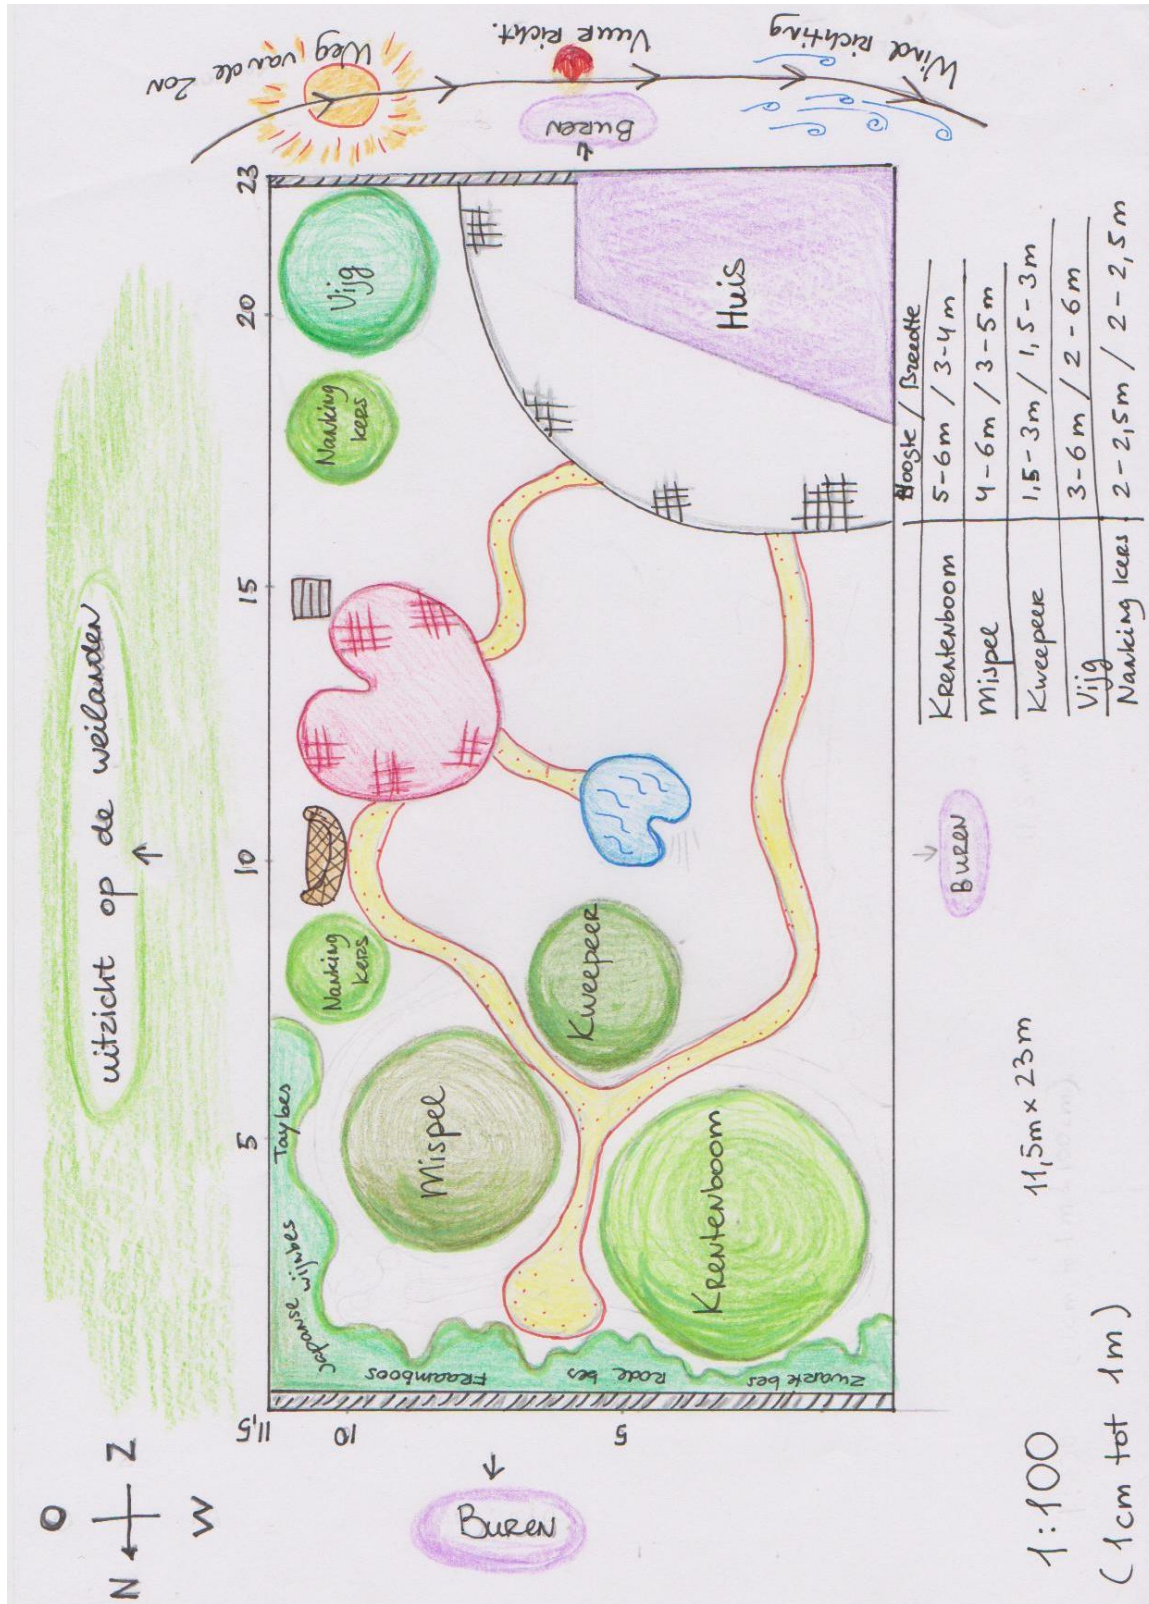 Weg van de Zon
Vuur Richt.
Wind Richting
Buren
uitzicht op de weilanden
23
20
15
10
5
11,5
10
5
Vijg
Nanking
kers
Huis
Nanking
kers
Kweepeer
Mispel
Krentenboom
Taybes
Japanse wijnbes
Fraamboos
Rode bes
Zwarte bes
Buren
Buren
O
N
Z
W
Hoogte / Breedte
Krentenboom 5-6m / 3-4m
Mispel 4-6m / 3-5m
Kweepeer 1,5-3m / 1,5-3m
Vijg 3-6m / 2-6m
Nanking kers 2-2,5m / 2-2,5m
11,5m x 23m
1:100
(1cm tot 1m)